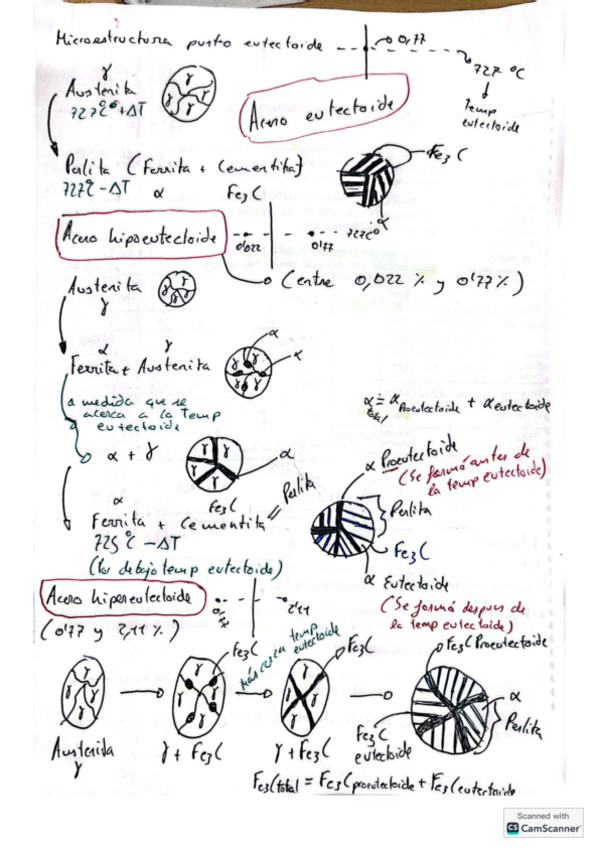 Microestructura punto eutectoide
0'77
727 ºC
Temp
eutectoide
γ
Austenita
727ºC + ΔT
Acero eutectoide
Perlita (Ferrita + Cementita)
727ºC - ΔT α Fe3C
Fe3C
α
Acero hipoeutectoide
0'022 0'77 727Cº
(entre 0,022 % y 0'77 %)
Austenita
γ
γ γ γ γ
α γ
Ferrita + Austenita
α
α
γ γ γ γ
a medida que se
acerca a la temp
eutectoide
α total = α Proeutectoide + α eutectoide
α + γ
γ γ γ
α
α Proeutectoide
(Se formó antes de
la temp eutectoide)
α Fe3C
Ferrita + Cementita = Perlita
725ºC - ΔT
(Por debajo temp eutectoide)
Perlita
Fe3C
α Eutectoide
(Se formó despues de
la temp eutectoide)
Acero hipereutectoide
0'77 2'11
(0'77 y 2,11 %)
Más cerca temp
eutectoide
Fe3C
Fe3C
Fe3C Proeutectoide
α
Perlita
γ γ γ γ
γ γ γ γ
γ γ γ γ
Austenita
γ
γ + Fe3C
γ + Fe3C
Fe3C
eutectoide
Fe3C total = Fe3C proeutectoide + Fe3C eutectoide
Scanned with
CS CamScanner